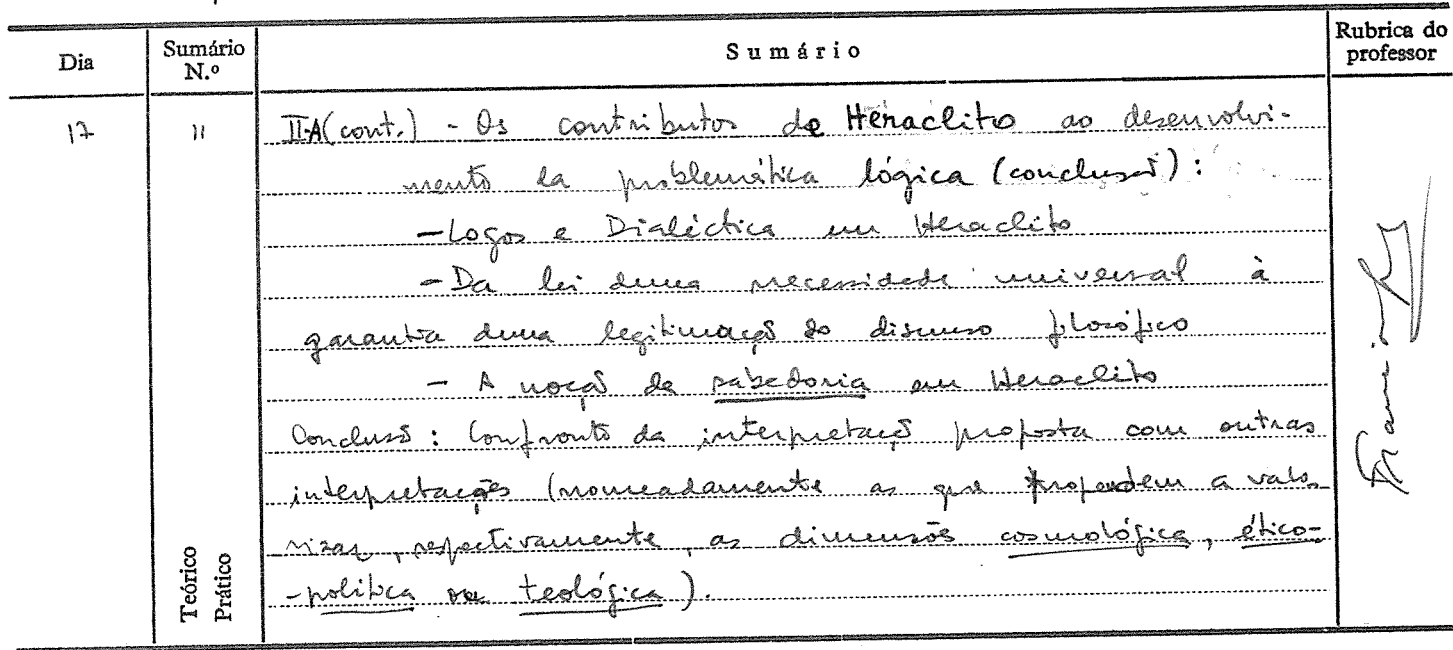 Dia
Sumário N.º
Sumário
Rubrica do professor
17
11
II-A (cont.) - Os contributos de Heraclito ao desenvolvi-
mento da problemática lógica (conclusão):
- Logos e Dialéctica em Heraclito
- Da lei duma necessidade universal à
garantia duma legitimação do discurso filosófico
- A noção de sabedoria em Heraclito
Conclusão: Confronto da interpretação proposta com outras
interpretações (nomeadamente as que propendem a valo-
rizar, respectivamente, as dimensões cosmológica, ético-
-política ou teológica).
Teórico
Prático